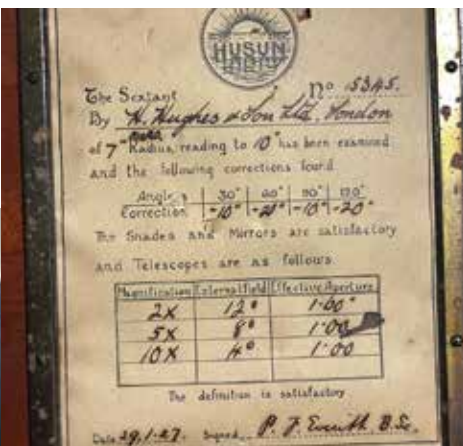 HUSUN
The Sextant No 15345.
By H. Hughes & Son Ltd. London
of 7" Radius, reading to 10" has been examined
and the following corrections found
Angles 30° 60° 90° 120°
Correction -10" -20" -10" -20"
The Shades and Mirrors are satisfactory
and Telescopes are as follows
Magnification External field Effective Aperture
2X 12° 1.60"
5X 8° 1.00
10X 4° 1.00
The definition is satisfactory
Date 29.1.27. Signed P. F. Everitt B.Sc.